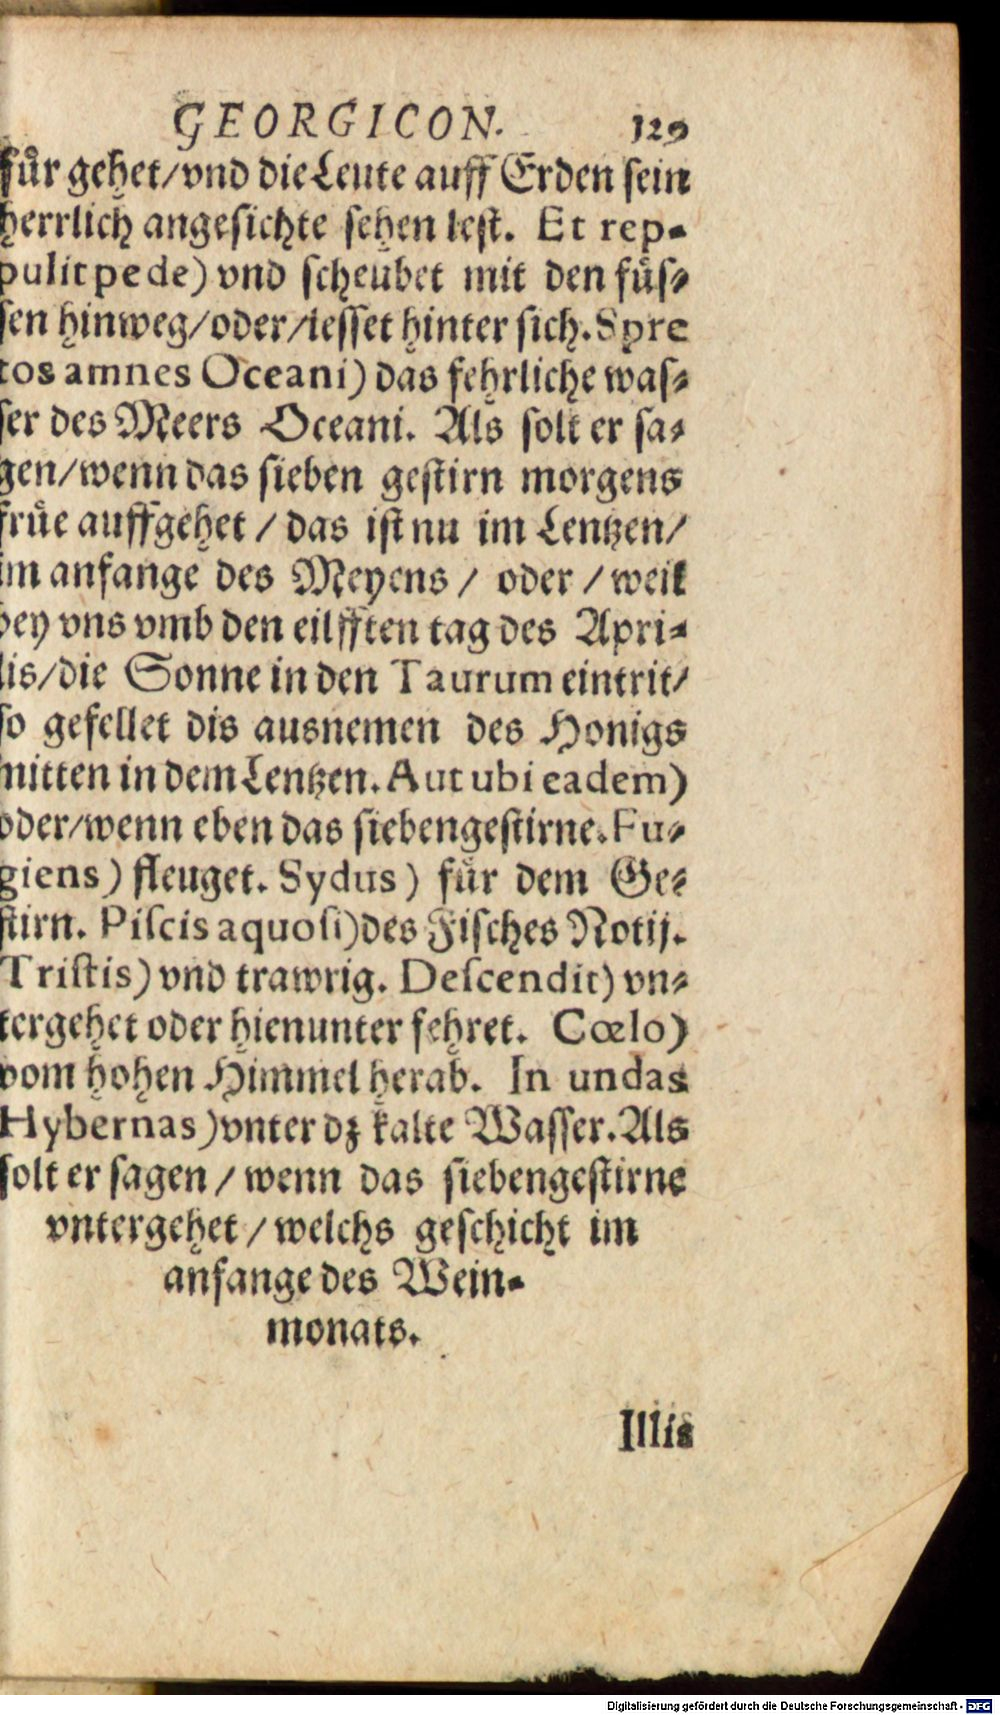 GEORGICON. 129
fuͤr gehet/vnd die Leute auff Erden sein
herrlich angesichte sehen lest. Et rep-
pulit pede) vnd scheubet mit den fuͤs-
sen hinweg/oder/lesset hinter sich. Spre
tos amnes Oceani) das fehrliche was-
ser des Meers Oceani. Als solt er sa-
gen/wenn das sieben gestirn morgens
fruͤe auffgehet / das ist nu im Lentzen/
im anfange des Meyens / oder / weil
bey vns vmb den eilfften tag des Apri-
lis/die Sonne in den Taurum eintrit/
so gefellet dis ausnemen des Honigs
mitten in dem Lentzen. Aut ubi eadem)
oder/wenn eben das siebengestirne. Fu-
giens) fleuget. Sydus) fuͤr dem Ge-
stirn. Piſcis aquoſi) des Fisches Notij.
Tristis) vnd trawrig. Deſcendit) vn-
tergehet oder hienunter fehret. Cœlo)
vom hohen Himmel herab. In undas
Hybernas) vnter dz kalte Wasser. Als
solt er sagen / wenn das siebengestirne
vntergehet / welchs geschicht im
anfange des Wein-
monats.
Illis
Digitalisierung gefördert durch die Deutsche Forschungsgemeinschaft - DFG